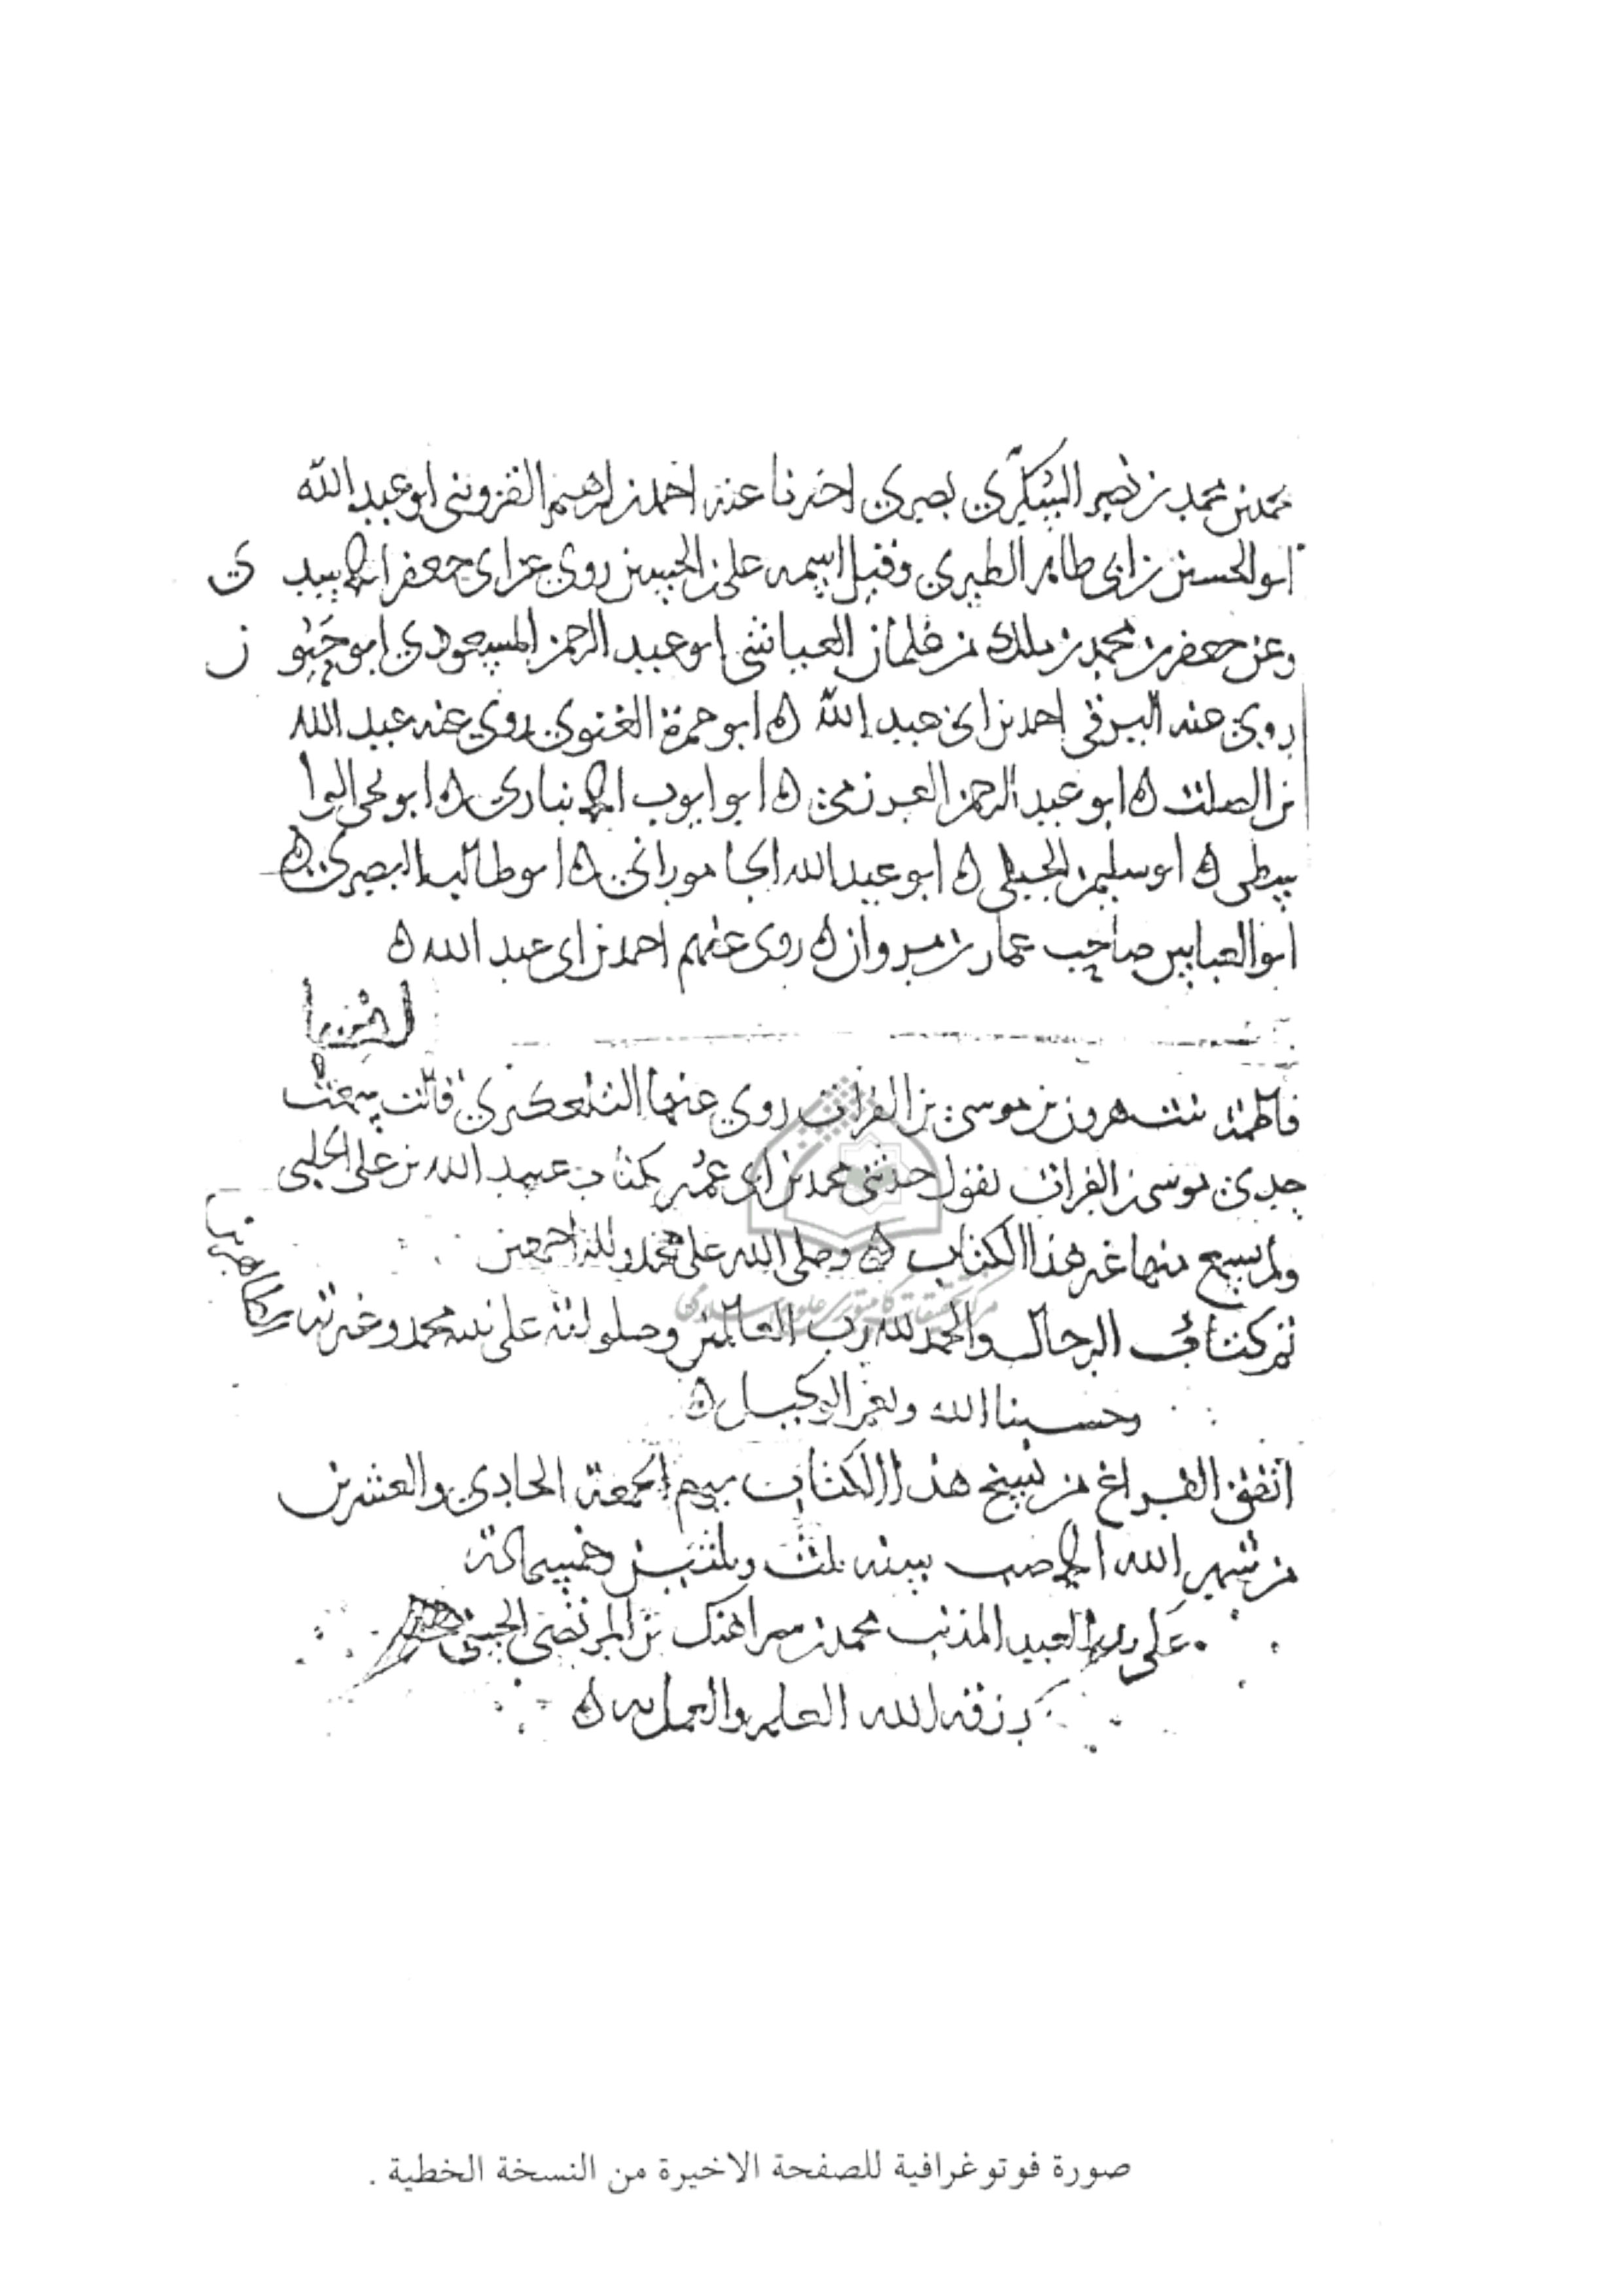 محمد بن محمد بن نصر السكري بصري اخبرنا عنه احمد بن ابرهيم القزويني ابو عبد الله
ابو الحسين بن ابي طاهر الطبري وقيل اسمه علي بن الحسين روى عن ابي جعفر الاسدي
وعن جعفر بن محمد بن ملك من غلمان العياشي ابو عبد الرحمن المسعودي ابو
روى عنه البرقي احمد بن ابي عبد الله ه ابو حمزة الغنوي روى عنه عبد الله
بن الصلت ه ابو عبد الرحمن العرزمي ه ابو ايوب الانباري ه ابو يحيى الوا
سطي ه ابو سليمن الجبلي ه ابو عبد الله الجاموراني ه ابو طالب البصري ه
ابو العباس صاحب عمار بن مروان ه روى عنهم احمد بن ابي عبد الله ه
فاطمة بنت هرون بن موسى بن الفرات روى عنها التلعكبري قالت سمعت
جدي موسى بن الفرات يقول حدثني محمد بن ابي عمير بكتاب عبيد الله بن علي الحلبي
ولم يسمع منها غير هذا الكتاب ه وصلى الله على محمد واله اجمعين
تم كتاب الرجال والحمد لله رب العالمين وصلواته على نبيه محمد وعترته
وحسبنا الله ونعم الوكيل ه
اتفق الفراغ من نسخ هذا الكتاب يوم الجمعة الحادي والعشرين
من شهر الله الاصب سنه ثلث وثلثين وخمسمائة
على يد العبد المذنب محمد بن سراهنك بن المرتضى الحسني
رزقه الله العلم والعمل به ه
مركز تحقيقات كامپيوتري علوم اسلامي
صورة فوتوغرافية للصفحة الاخيرة من النسخة الخطية .